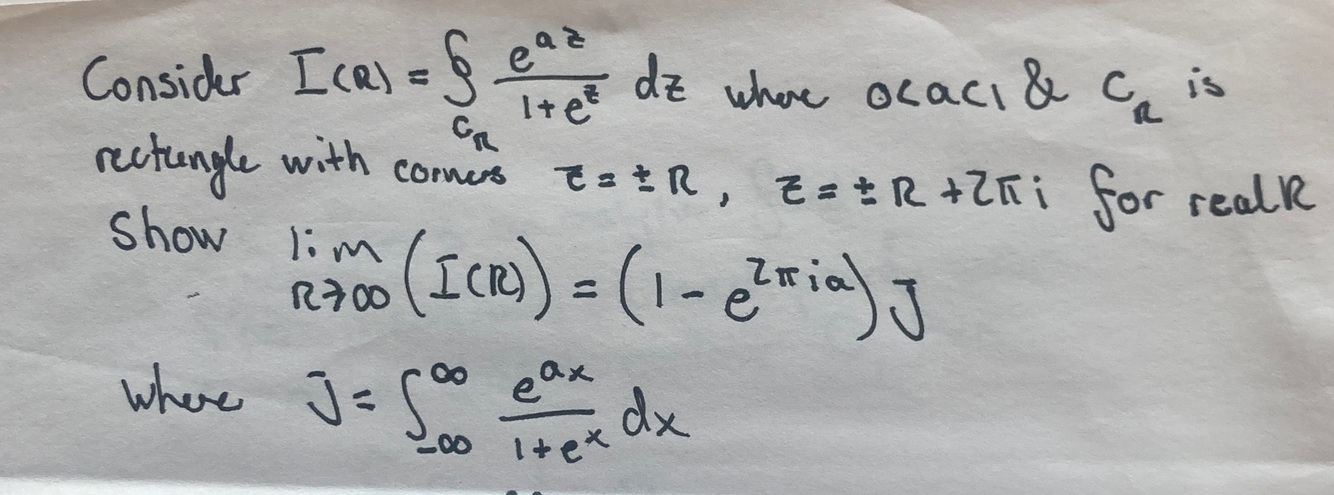 Consider I(R) = ∮_{C_R} e^{az}/(1+e^z) dz where 0<a<1 & C_R is
rectangle with corners z = ± R, z = ± R + 2πi for real R
Show lim_{R→∞} (I(R)) = (1 - e^{2πia}) J
where J = ∫_{-∞}^{∞} e^{ax}/(1+e^x) dx